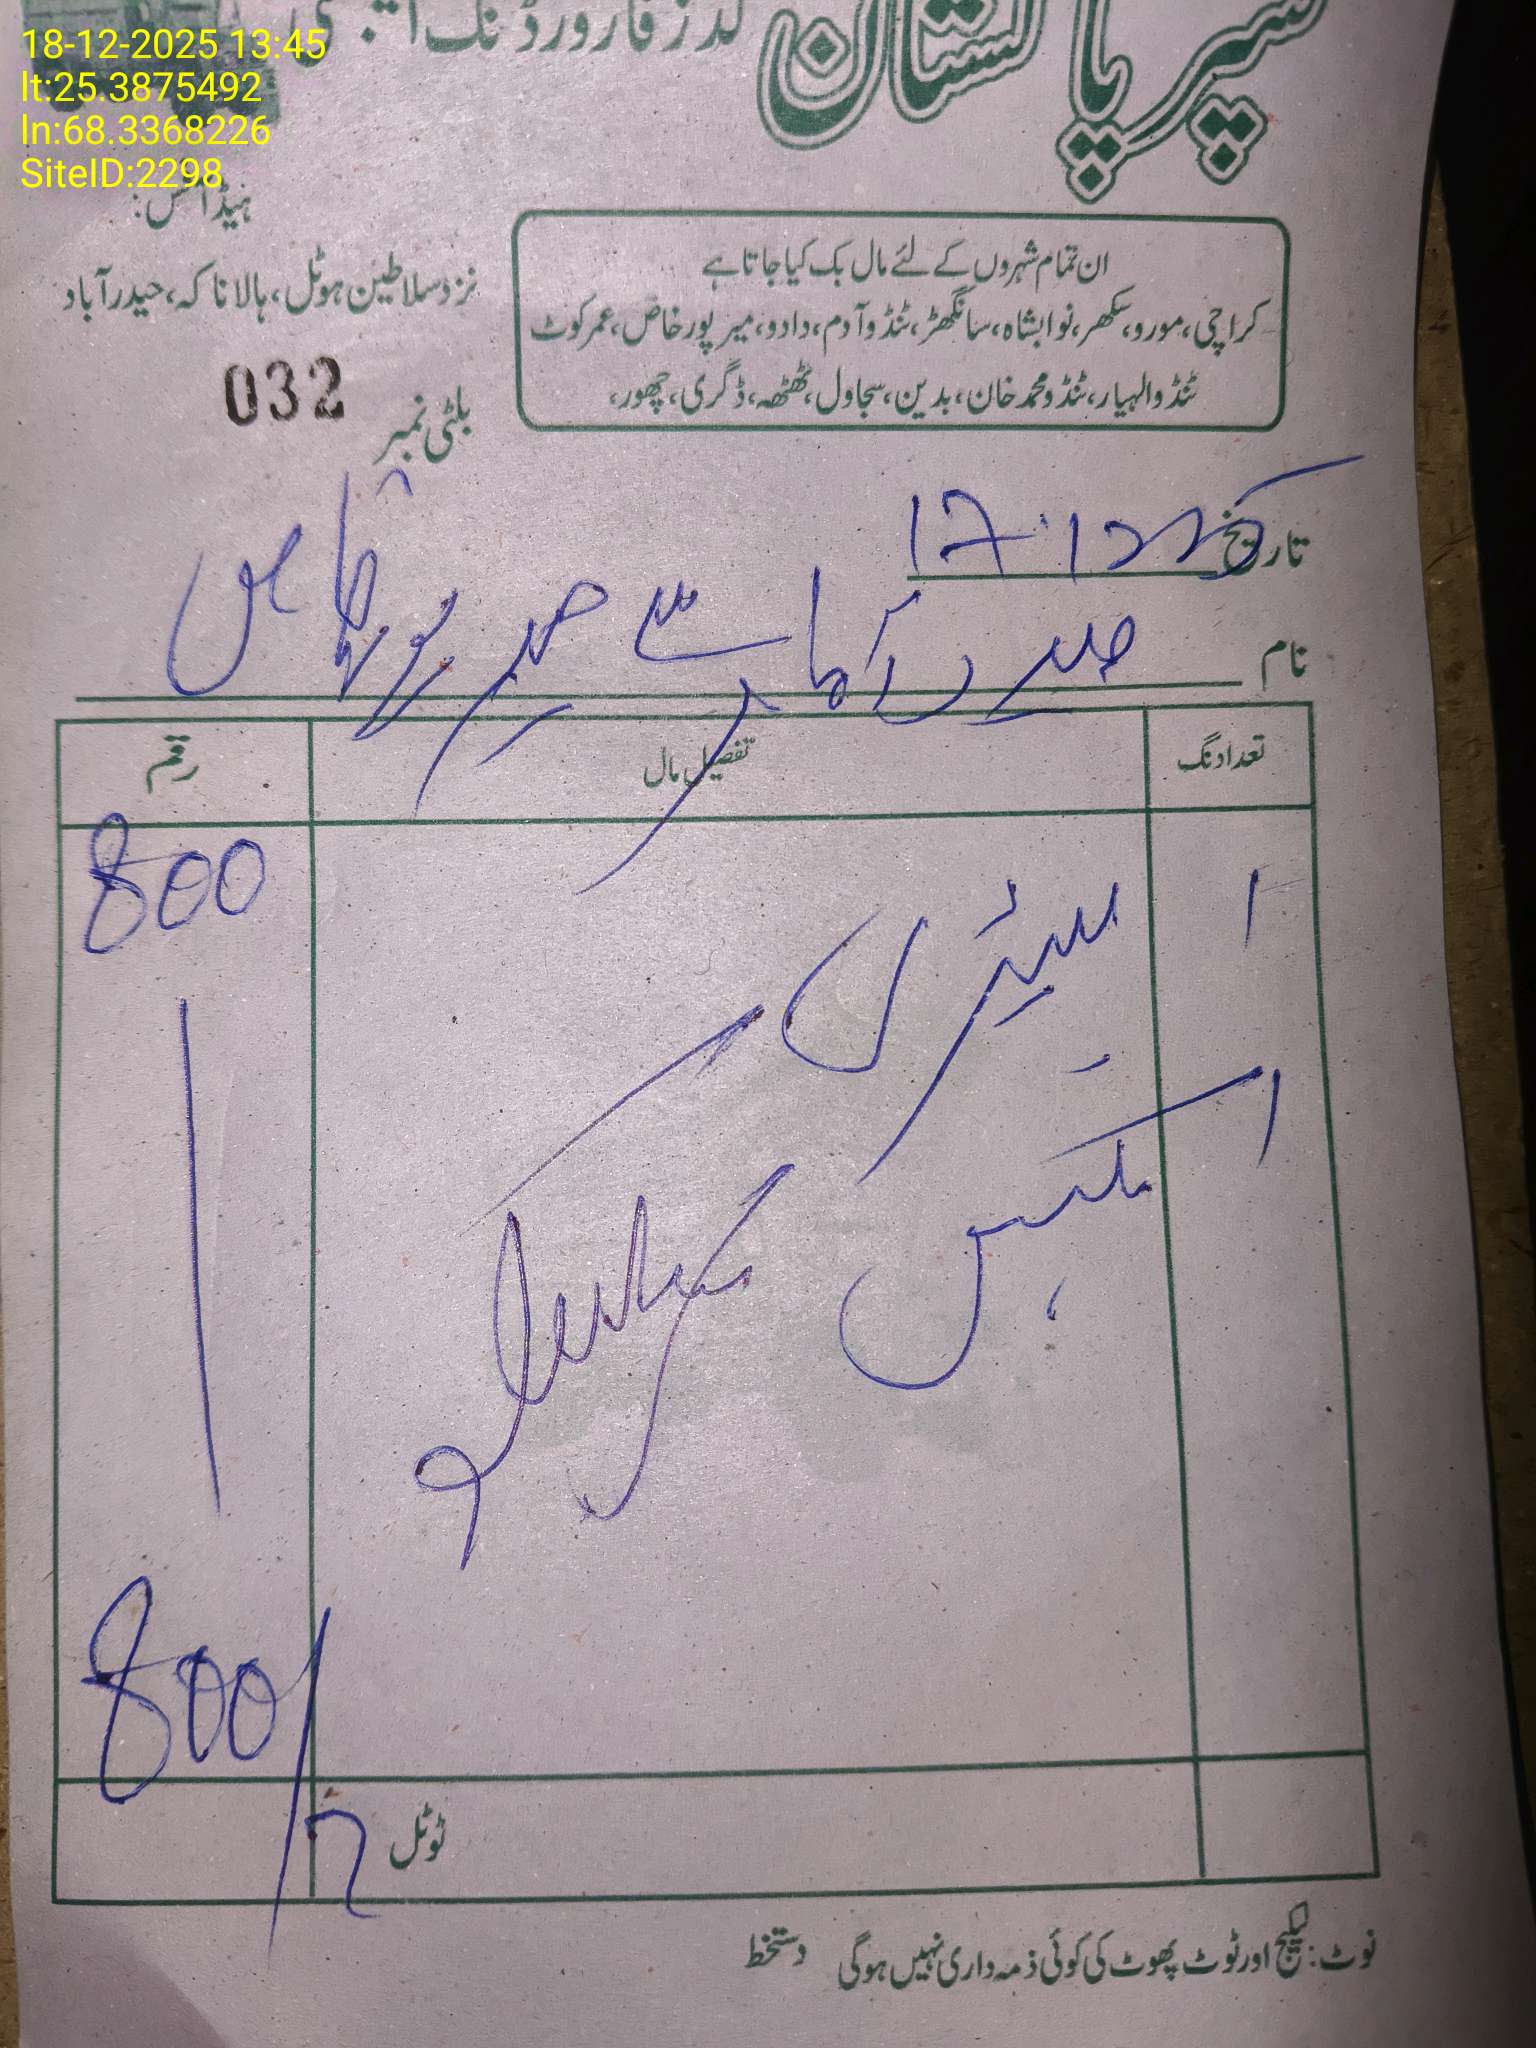 18-12-2025 13:45
lt:25.3875492
ln:68.3368226
SiteID:2298
سپر پاکستان
گڈز فارورڈنگ
ہیڈ آفس:
نزد سلاطین ہوٹل، ہالا ناکہ، حیدرآباد
ان تمام شہروں کے لئے مال بک کیا جاتا ہے
کراچی، مورو، سکھر، نوابشاہ، سانگھڑ، ٹنڈو آدم، دادو، میرپورخاص، عمرکوٹ
ٹنڈوالہیار، ٹنڈو محمد خان، بدین، سجاول، ٹھٹھہ، ڈگری، چھور،
بلٹی نمبر 032
تاریخ 17-12-25
نام حیدرآباد سے میرپورخاص
تعداد نگ تفصیل مال رقم
1 بیٹری 800
1 بکس
800/
ٹوٹل
نوٹ: لیکیج اور ٹوٹ پھوٹ کی کوئی ذمہ داری نہیں ہوگی دستخط